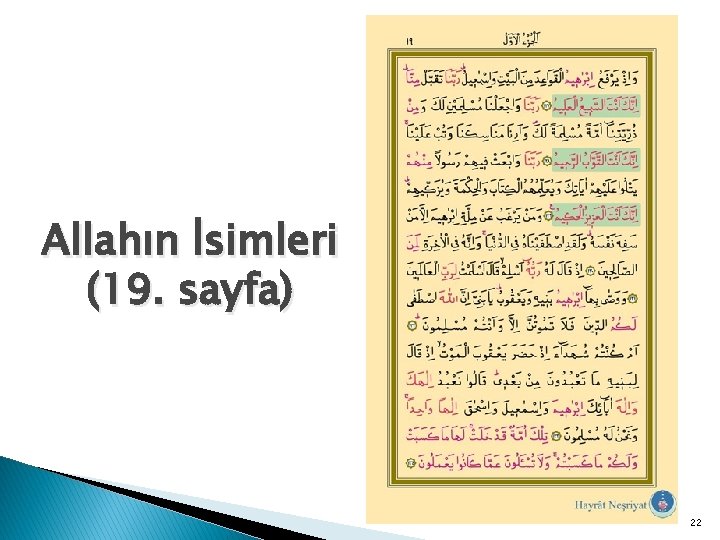 Allahın İsimleri
(19. sayfa)
١٩ اَلْجُزْءُ الْاَوَّلُ
وَاِذْ يَرْفَعُ اِبْرٰه۪يمُ الْقَوَاعِدَ مِنَ الْبَيْتِ وَاِسْمٰع۪يلُ رَبَّنَا تَقَبَّلْ مِنَّا
اِنَّكَ اَنْتَ السَّم۪يعُ الْعَل۪يمُ رَبَّنَا وَاجْعَلْنَا مُسْلِمَيْنِ لَكَ وَمِنْ
ذُرِّيَّتِنَا اُمَّةً مُسْلِمَةً لَكَ وَاَرِنَا مَنَاسِكَنَا وَتُبْ عَلَيْنَا
اِنَّكَ اَنْتَ التَّوَّابُ الرَّح۪يمُ رَبَّنَا وَابْعَثْ ف۪يهِمْ رَسُولًا مِنْهُمْ
يَتْلُوا عَلَيْهِمْ اٰيَاتِكَ وَيُعَلِّمُهُمُ الْكِتَابَ وَالْحِكْمَةَ وَيُزَكّ۪يهِمْ
اِنَّكَ اَنْتَ الْعَز۪يزُ الْحَك۪يمُ وَمَنْ يَرْغَبُ عَنْ مِلَّةِ اِبْرٰه۪يمَ اِلَّا مَنْ
سَفِهَ نَفْسَهُ وَلَقَدِ اصْطَفَيْنَاهُ فِي الدُّنْيَا وَاِنَّهُ فِي الْاٰخِرَةِ لَمِنَ
الصَّالِح۪ينَ اِذْ قَالَ لَهُ رَبُّهُ اَسْلِمْ قَالَ اَسْلَمْتُ لِرَبِّ الْعَالَم۪ينَ
وَوَصّٰى بِهَا اِبْرٰه۪يمُ بَن۪يهِ وَيَعْقُوبُ يَا بَنِيَّ اِنَّ اللّٰهَ اصْطَفٰى
لَكُمُ الدّ۪ينَ فَلَا تَمُوتُنَّ اِلَّا وَاَنْتُمْ مُسْلِمُونَ
اَمْ كُنْتُمْ شُهَدَاءَ اِذْ حَضَرَ يَعْقُوبَ الْمَوْتُ اِذْ قَالَ
لِبَن۪يهِ مَا تَعْبُدُونَ مِنْ بَعْد۪ي قَالُوا نَعْبُدُ اِلٰهَكَ
وَاِلٰهَ اٰبَائِكَ اِبْرٰه۪يمَ وَاِسْمٰع۪يلَ وَاِسْحٰقَ اِلٰهًا وَاحِدًا
وَنَحْنُ لَهُ مُسْلِمُونَ تِلْكَ اُمَّةٌ قَدْ خَلَتْ لَهَا مَا كَسَبَتْ
وَلَكُمْ مَا كَسَبْتُمْ وَلَا تُسْـَٔلُونَ عَمَّا كَانُوا يَعْمَلُونَ
Hayrât Neşriyat
22